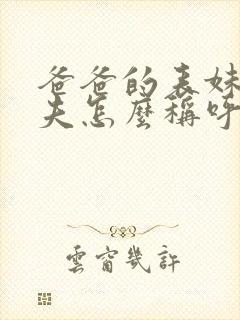 爸爸的表妹
夫怎麼稱呼
雲窗幾許